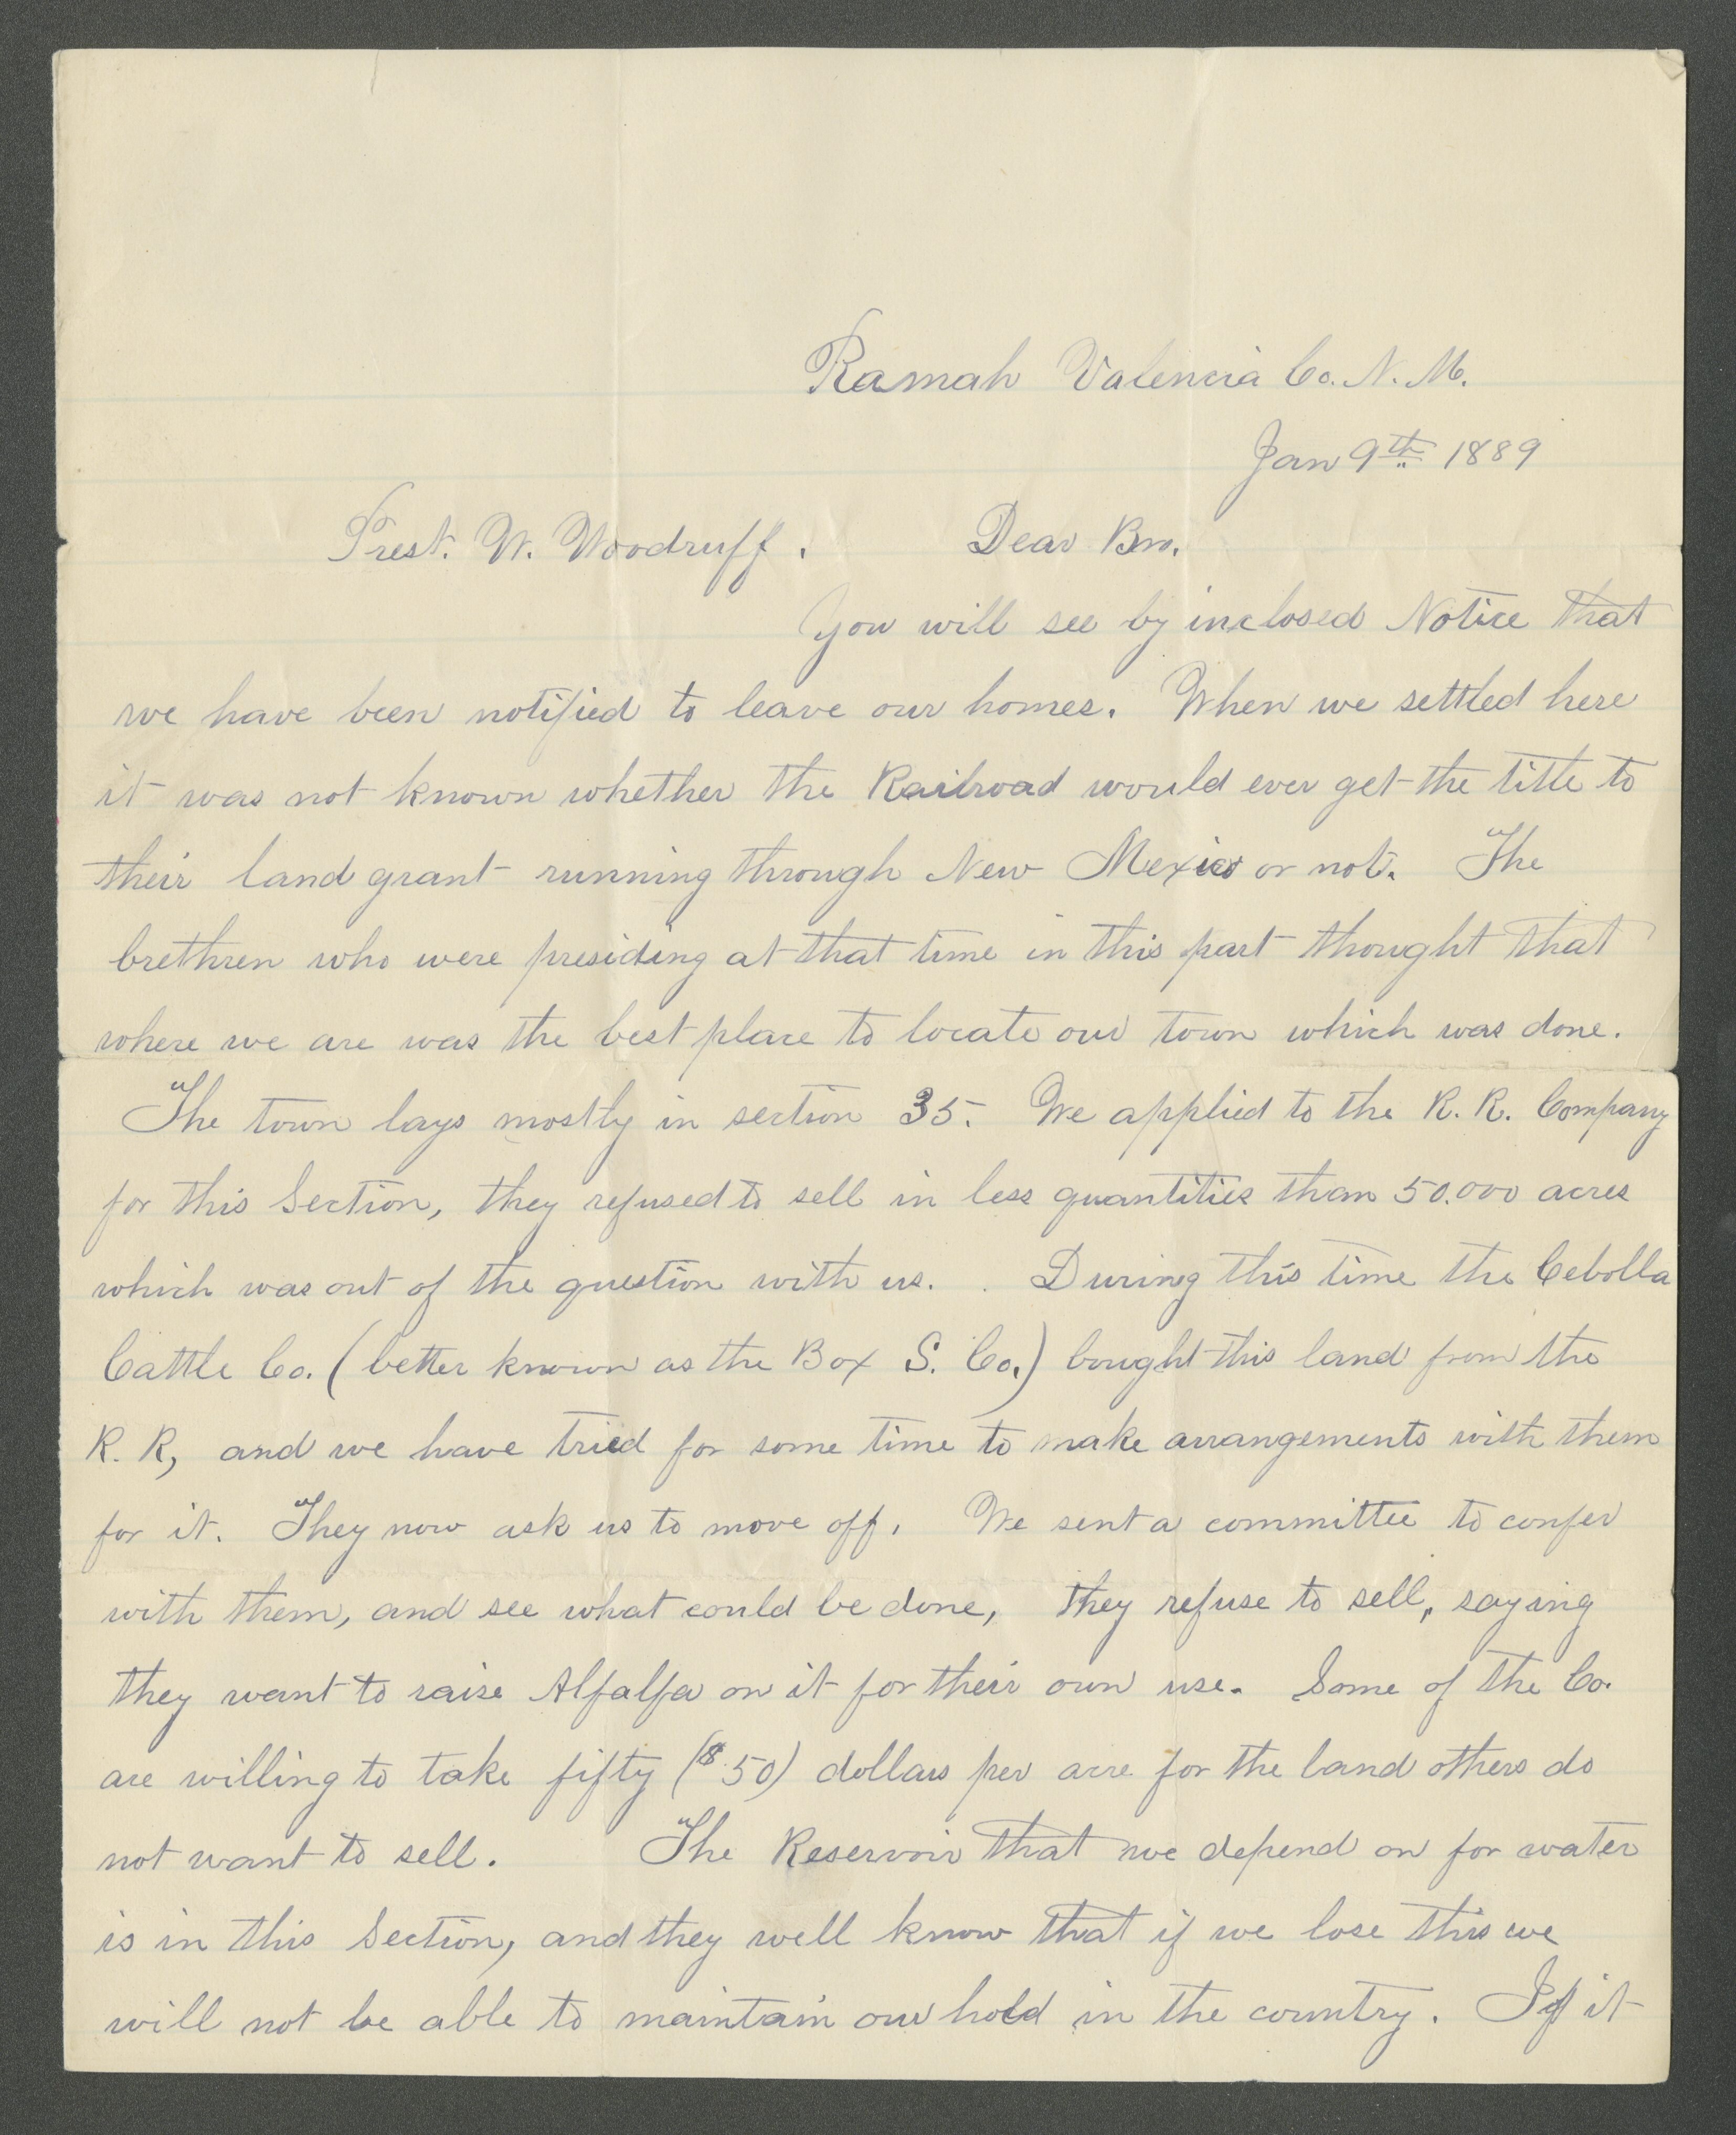 Ramah Valencia Co. N. M.
Jan 9th 1889
Prest. W. Woodruff. Dear Bro.
You will see by inclosed Notice that
we have been notified to leave our homes. When we settled here
it was not known whether the Railroad would ever get the title to
their land grant running through New Mexico or not. The
brethren who were presiding at that time in this part thought that
where we are was the best place to locate our town which was done.
The town lays mostly in section 35. We applied to the R. R. Company
for this Section, they refused to sell in less quantities than 50.000 acres
which was out of the question with us. . During this time the Cebolla
Cattle Co. (better known as the Box S. Co.) bought this land from the
R. R, and we have tried for some time to make arrangements with them
for it. They now ask us to move off. We sent a committee to confer
with them, and see what could be done, they refuse to sell, saying
they want to raise Alfalfa on it for their own use. Some of the Co.
are willing to take fifty ($50) dollars per acre for the land others do
not want to sell. The Reservoir that we depend on for water
is in this Section, and they well know that if we lose this we
will not be able to maintain our hold in the country. If it